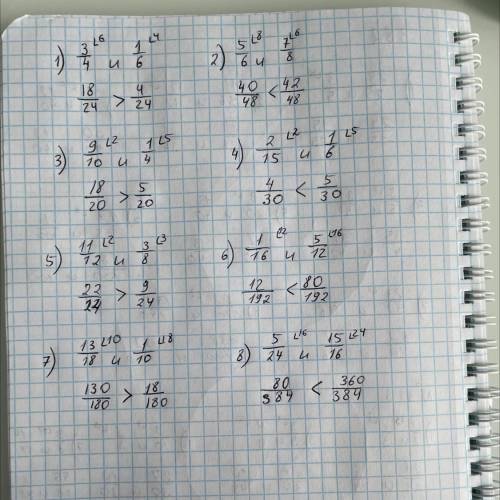 1) 3/4 ⌊6 и 1/6 ⌊4
18/24 > 4/24
2) 5/6 ⌊8 и 7/8 ⌊6
40/48 < 42/48
3) 9/10 ⌊2 и 1/4 ⌊5
18/20 > 5/20
4) 2/15 ⌊2 и 1/6 ⌊5
4/30 < 5/30
5) 11/12 ⌊2 и 3/8 ⌊3
22/24 > 9/24
6) 1/16 ⌊12 и 5/12 ⌊16
12/192 < 80/192
7) 13/18 ⌊10 и 1/10 ⌊18
130/180 > 18/180
8) 5/24 ⌊16 и 15/16 ⌊24
80/384 < 360/384